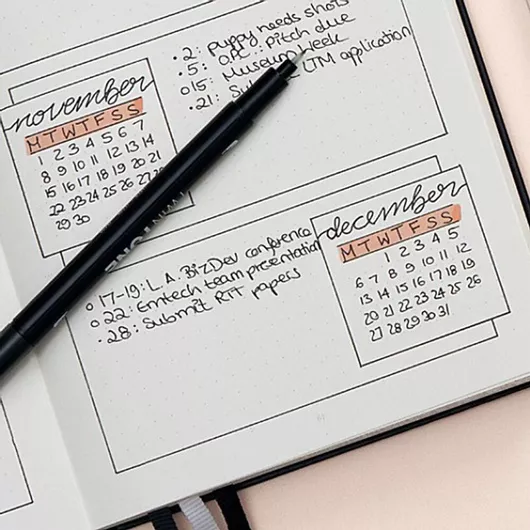 november
M T W T F S S
1 2 3 4 5 6 7
8 9 10 11 12 13 14
15 16 17 18 19 20 21
22 23 24 25 26 27
29 30
• 2: puppy needs shots
• 5: pitch due
o 15: Museum Week
• 21: LTM application
december
M T W T F S S
1 2 3 4 5
6 7 8 9 10 11 12
13 14 15 16 17 18 19
20 21 22 23 24 25 26
27 28 29 30 31
o 17-19: L.A. BizDev conference
o 22: Emtech team presentation
• 28: Submit RTT papers